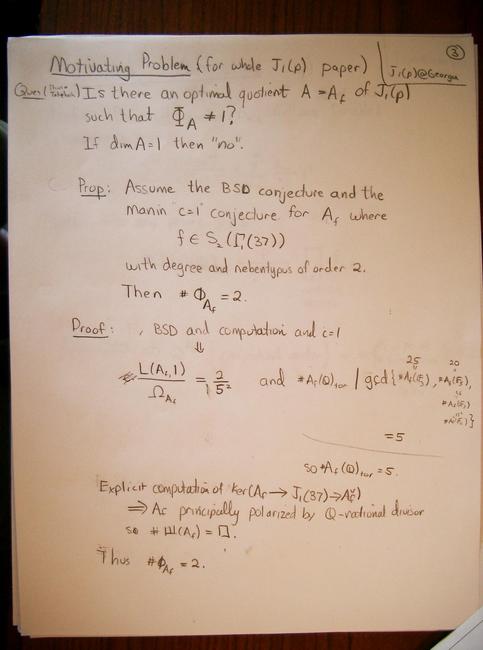 ③
Motivating Problem (for whole J₁(p) paper)
J₁(p)@Georgia
Ques Is there an optimal quotient A = A_f of J₁(p)
such that Φ_A ≠ 1?
If dim A = 1 then "no".
Prop: Assume the BSD conjecture and the
manin "c=1" conjecture for A_f where
f ∈ S₂(Γ₁(37))
with degree and nebentypus of order 2.
Then #Φ_{A_f} = 2.
Proof: , BSD and computation and c=1
⇓
L(A_f,1)/Ω_{A_f} = 2/5² and #A_f(Q)_tor | gcd{#A_f(F₃), #A_f(F₅),
25 20
#A_f(F₇)
}
=5
so #A_f(Q)_tor = 5.
Explicit computation of ker(A_f → J₁(37) → A_f^∨)
⇒ A_f principally polarized by Q-rational divisor
so #Ш(A_f) = □.
Thus #Φ_{A_f} = 2.